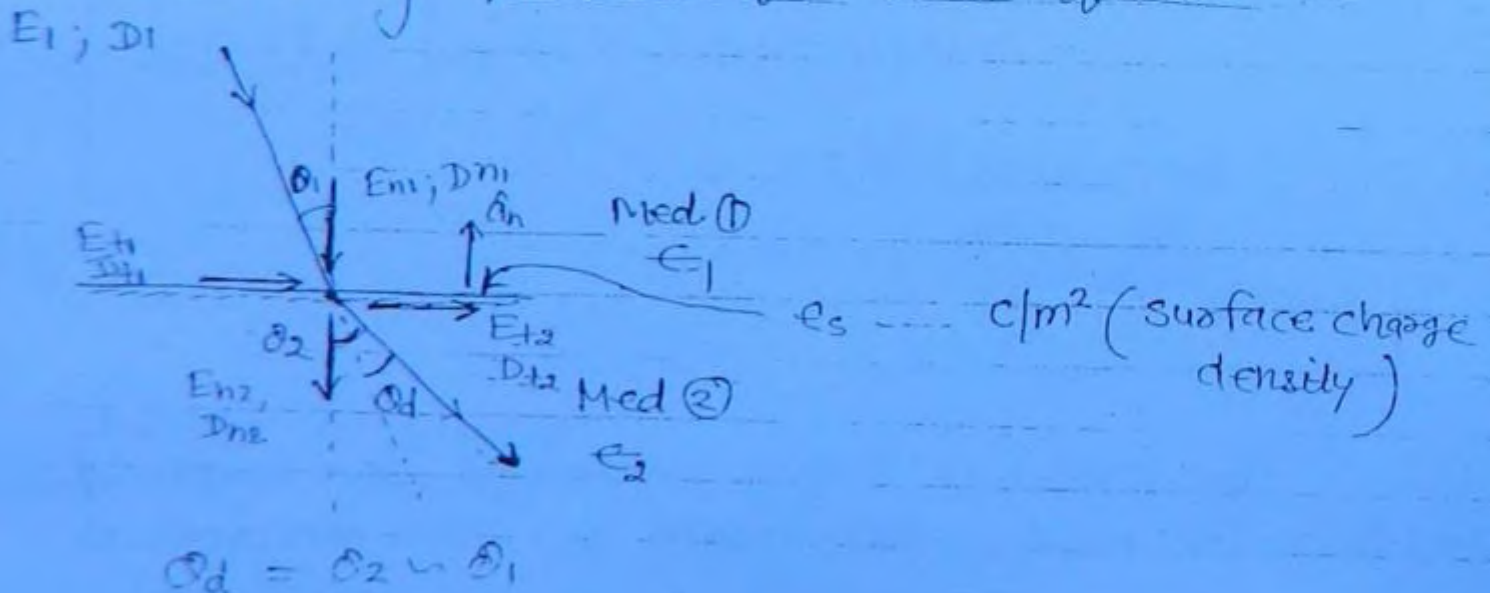 E1 ; D1
θ1
En1 ; Dn1
ân
Med ①
ϵ1
Et1
Dt1
ρs .... c/m² ( surface charge
density )
Et2
Dt2
θ2
En2,
Dn2
θd
Med ②
ϵ2
θd = θ2 ~ θ1